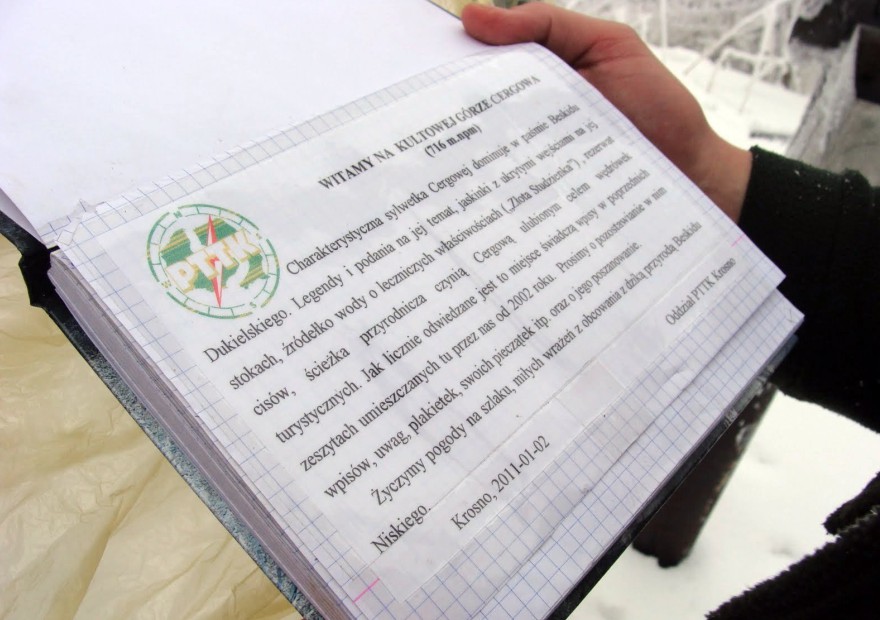 WITAMY NA KULTOWEJ GÓRZE CERGOWA
(716 m.npm)
PTTK
Charakterystyczna sylwetka Cergowej dominuje w paśmie Beskidu
Dukielskiego. Legendy i podania na jej temat, jaskinki z ukrytymi wejściami na jej
stokach, źródełko wody o leczniczych właściwościach („Złota Studzienka”) , rezerwat
cisów, ścieżka przyrodnicza czynią Cergową ulubionym celem wędrówek
turystycznych. Jak licznie odwiedzane jest to miejsce świadczą wpisy w poprzednich
zeszytach umieszczanych tu przez nas od 2002 roku. Prosimy o pozostawianie w nim
wpisów, uwag, plakietek, swoich pieczątek itp. oraz o jego poszanowanie.
Życzymy pogody na szlaku, miłych wrażeń z obcowania z dziką przyrodą Beskidu
Niskiego.
Oddział PTTK Krosno
Krosno, 2011-01-02